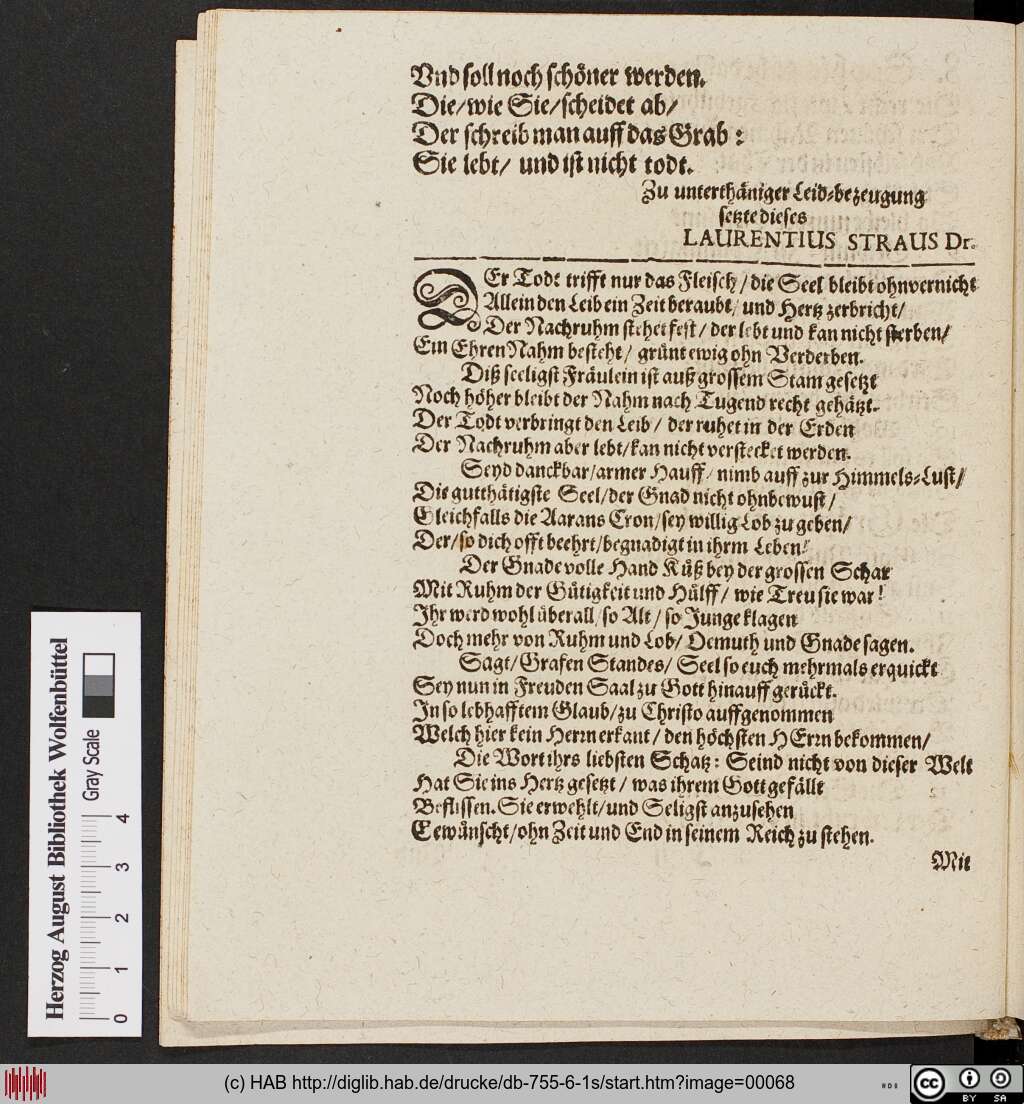 Vnd soll noch schöner werden.
Die/wie Sie/scheidet ab/
Der schreib man auff das Grab:
Sie lebt/ und ist nicht todt.
Zu unterthäniger Leid-bezeugung
setzte dieses
LAURENTIUS STRAUS Dr.
DEr Todt trifft nur das Fleisch/ die Seel bleibt ohnvernicht
Allein den Leib ein Zeit beraubt/ und Hertz zerbricht/
Der Nachruhm stehet fest/ der lebt und kan nicht sterben/
Ein Ehren Nahm besteht/ grünt ewig ohn Verderben.
Diß seeligst Fräulein ist auß grossem Stam gesetzt
Noch höher bleibt der Nahm nach Tugend recht gehätzt.
Der Todt verbringt den Leib/ der ruhet in der Erden
Der Nachruhm aber lebt/kan nicht verstecket werden.
Seyd danckbar/armer Hauff/ nimb auff zur Himmels-Lust/
Die gutthätigste Seel/der Gnad nicht ohnbewust/
Gleichfalls die Aarans Cron/sey willig Lob zu geben/
Der/so dich offt beehrt/begnadigt in ihrm Leben!
Der Gnade volle Hand Küß bey der grossen Schar
Mit Ruhm der Gütigkeit und Hülff/ wie Treu sie war!
Ihr werd wohl überall/so Alt/ so Junge klagen
Doch mehr von Ruhm und Lob/ Demuth und Gnade sagen.
Sagt/Grafen Standes/ Seel so euch mehrmals erquickt
Sey nun in Freuden Saal zu Gott hinauff gerückt.
In so lebhafftem Glaub/zu Christo auffgenommen
Welch hier kein Herrn erkant/ den höchsten HErrn bekommen/
Die Wort ihrs liebsten Schatz: Seind nicht von dieser Welt
Hat Sie ins Hertz gesetzt/ was ihrem Gott gefällt
Beflissen. Sie erwehlt/und Seligst anzusehen
Gewünscht/ohn Zeit und End in seinem Reich zu stehen.
Mit
Herzog August Bibliothek Wolfenbüttel
Gray Scale
0 1 2 3 4
(c) HAB http://diglib.hab.de/drucke/db-755-6-1s/start.htm?image=00068
cc BY SA